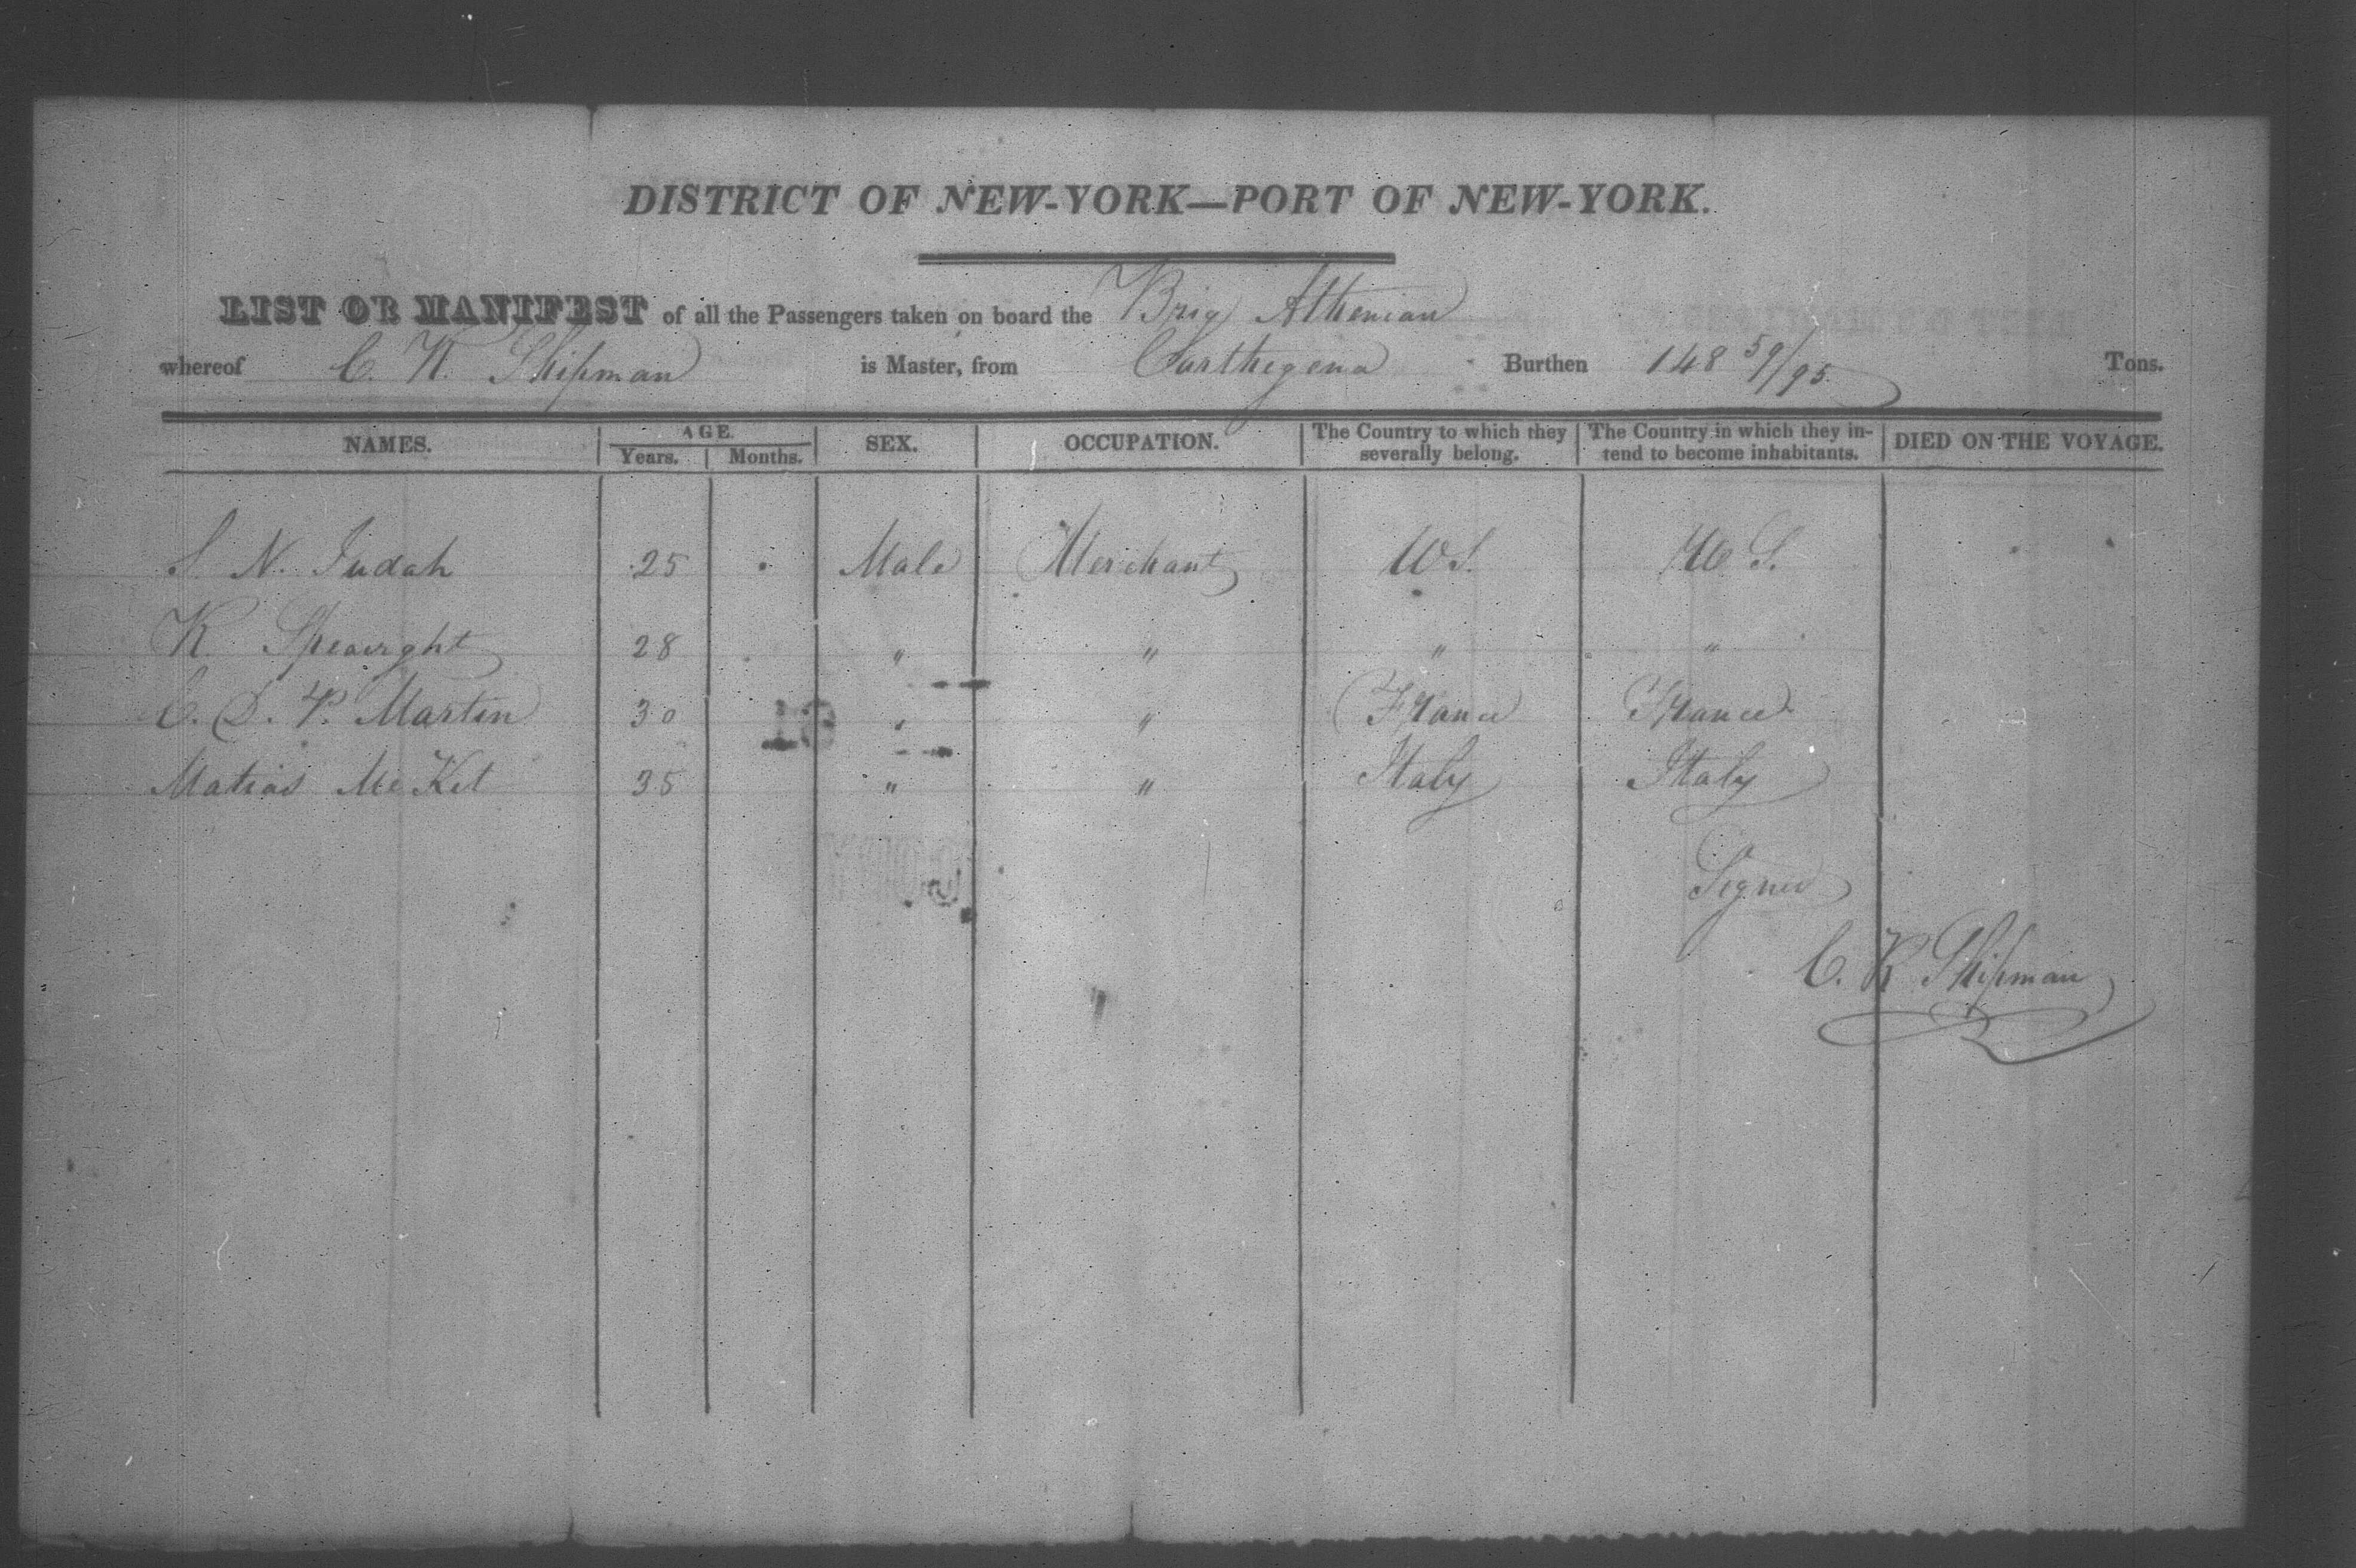 DISTRICT OF NEW-YORK—PORT OF NEW-YORK.
LIST OR MANIFEST of all the Passengers taken on board the Brig Athenian
whereof C. K. Shipman is Master, from Carthegena Burthen 148 59/95 Tons.
NAMES. AGE. Years. Months. SEX. OCCUPATION. The Country to which they severally belong. The Country in which they intend to become inhabitants. DIED ON THE VOYAGE.
S. N. Judah 25 Male Merchant U S. U. S.
K. Speairght 28 " " " "
C. D. P. Martin 30 " " France France
Matias 35 " " Italy Italy
Signed
C. K Shipman